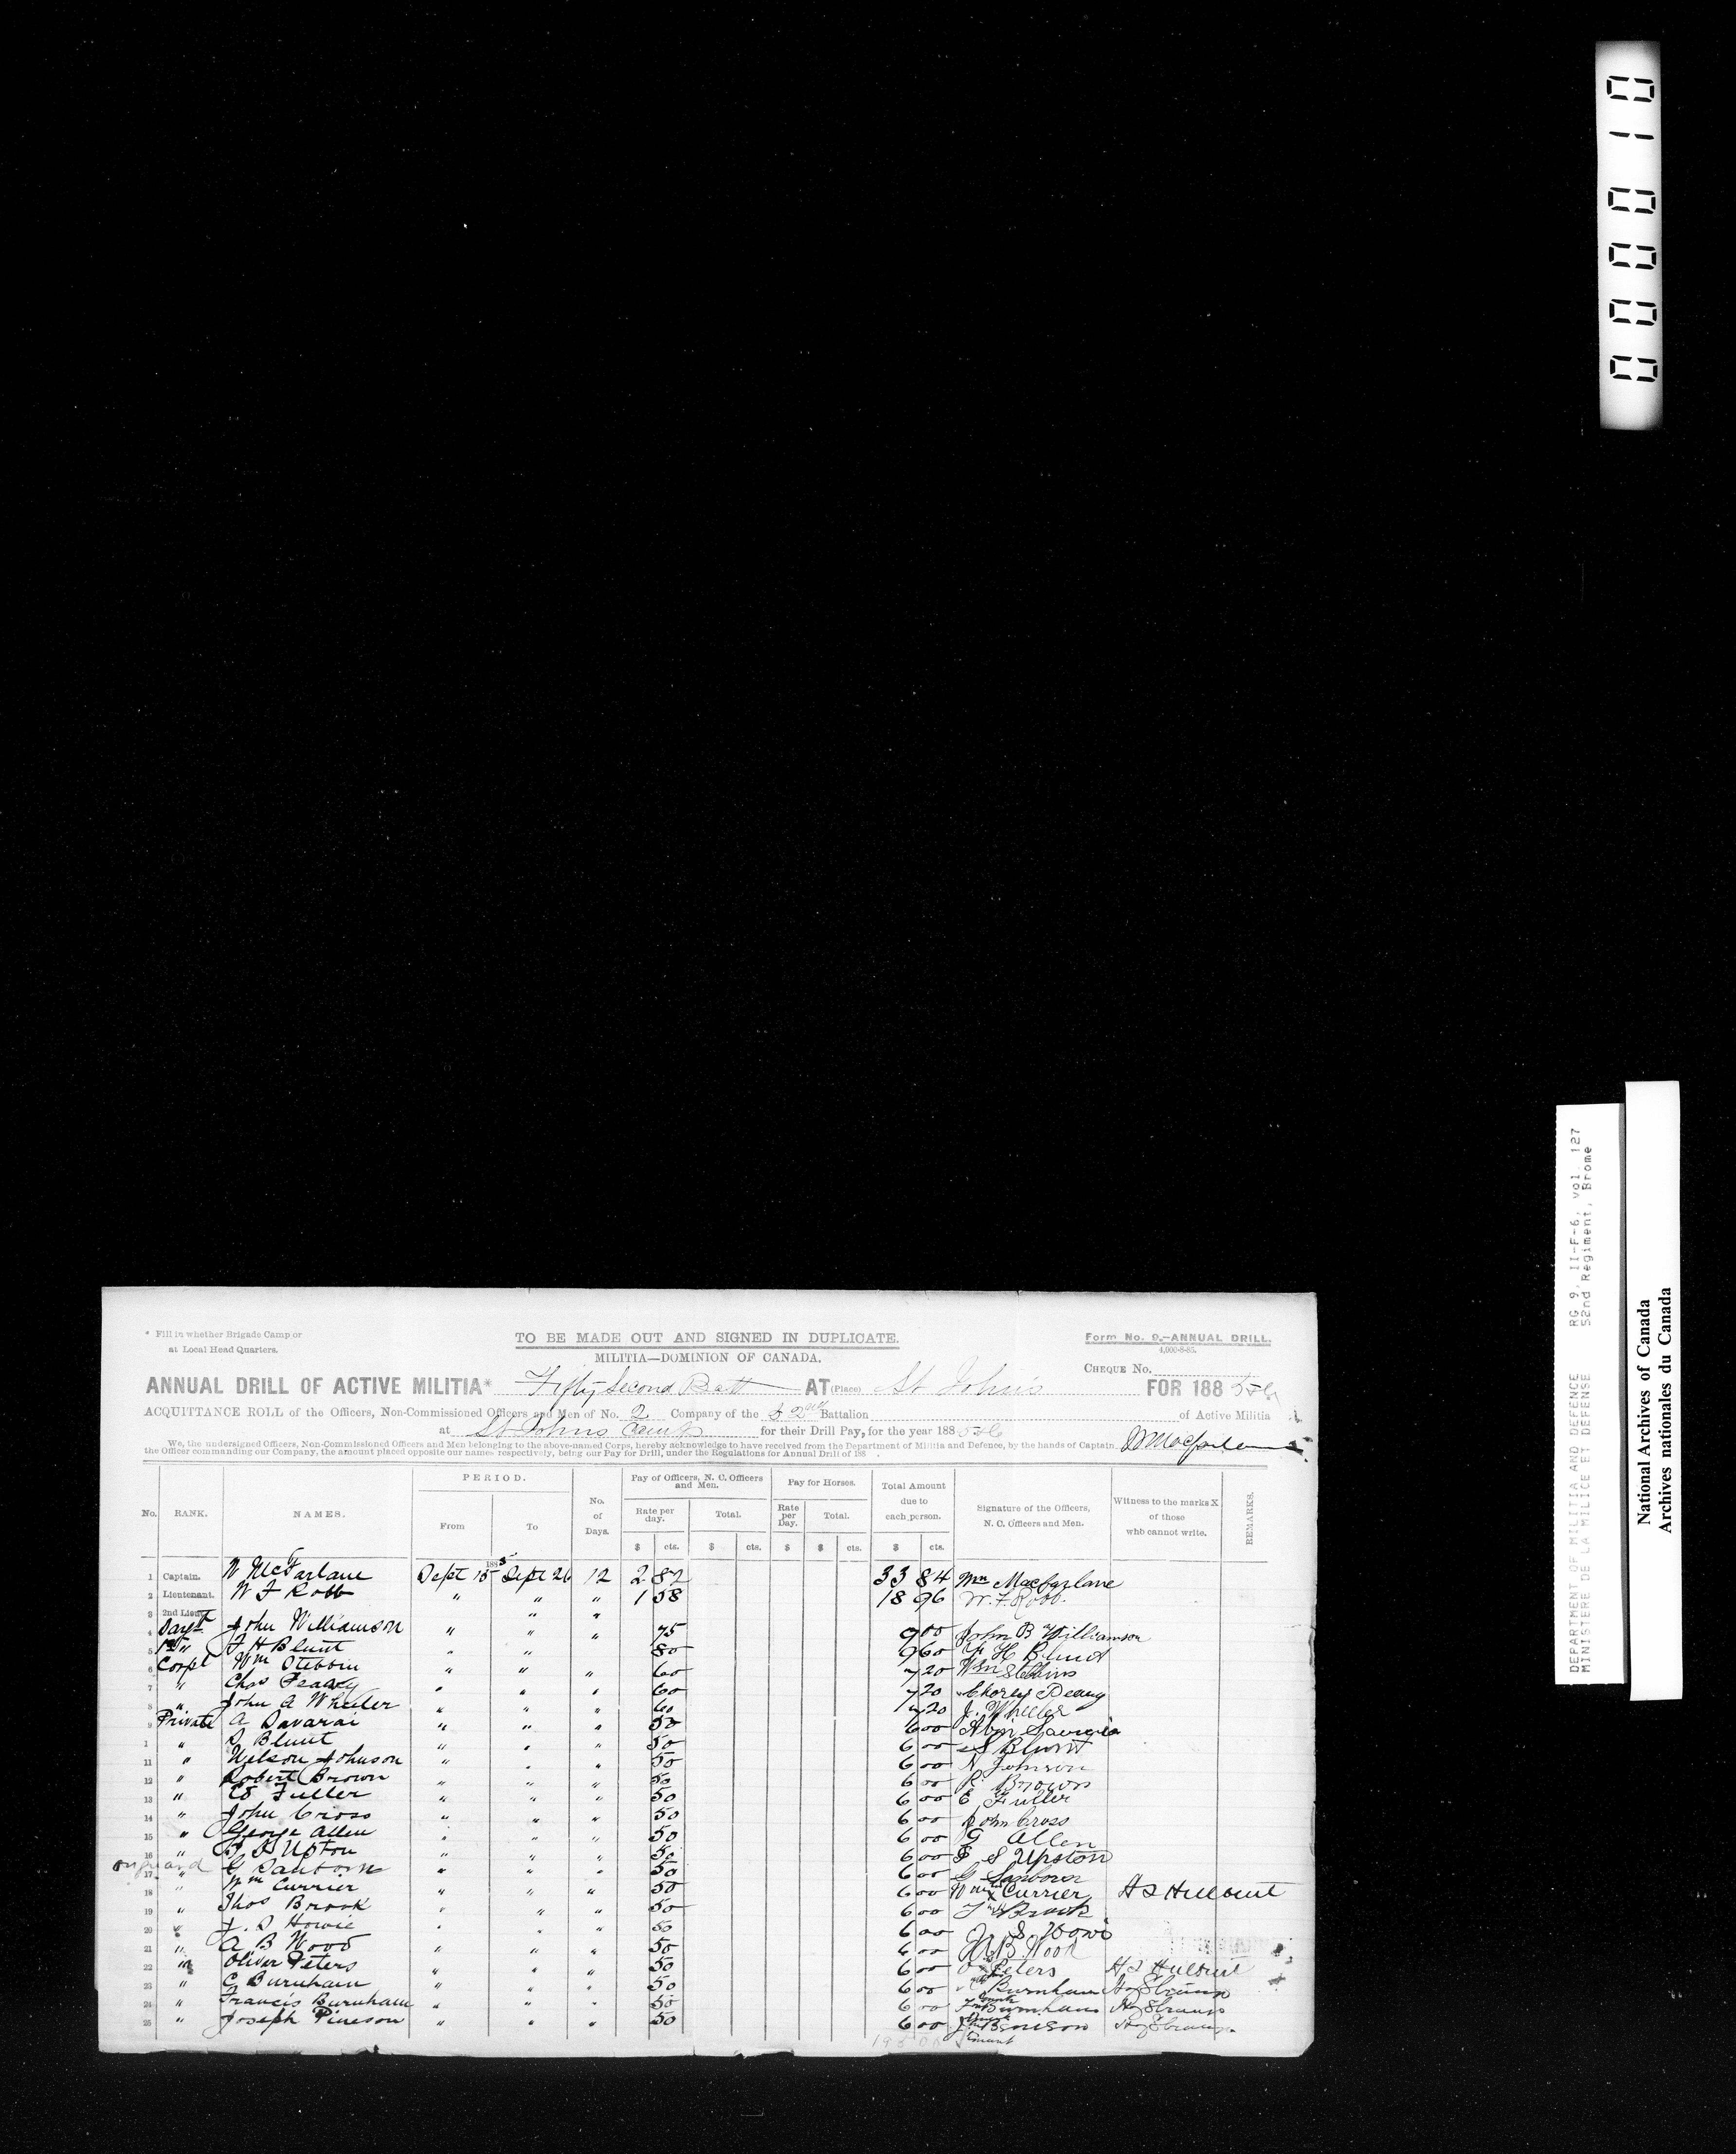 000010
* Fill in whether Brigade Camp or
at Local Head Quarters.
TO BE MADE OUT AND SIGNED IN DUPLICATE.
MILITIA—DOMINION OF CANADA.
Form No. 9.—ANNUAL DRILL.
4,000-8-85.
CHEQUE No.
ANNUAL DRILL OF ACTIVE MILITIA* Fifty Second Batt AT (Place) St Johns FOR 188 5-6
ACQUITTANCE ROLL of the Officers, Non-Commissioned Officers and Men of No. 2 Company of the 52nd Battalion of Active Militia
at St Johns Camp for their Drill Pay, for the year 188 5-6
We, the undersigned Officers, Non-Commissioned Officers and Men belonging to the above-named Corps, hereby acknowledge to have received from the Department of Militia and Defence, by the hands of Captain
the Officer commanding our Company, the amount placed opposite our names respectively, being our Pay for Drill, under the Regulations for Annual Drill of 188 .
No. RANK. NAMES. PERIOD. From To No. of Days. Pay of Officers, N. C. Officers and Men. Rate per day. Total. Pay for Horses. Rate per Day. Total. Total Amount due to each person. Signature of the Officers, N. C. Officers and Men. Witness to the marks X of those who cannot write. REMARKS.
$ cts. $ cts. $ $ cts. $ cts.
1885
1 Captain. W McFarlane Sept 15 Sept 26 12 2 82 33 84 Wm Macfarlane
2 Lieutenant. W F Robb " " " 1 58 18 96 W. F. Robb.
3 2nd Lieut " "
4 Sargt John Williamson " " " 75 9 00 John B Williamson
5 " H Blunt " " " 80 9 60 H Blunt
6 Corpl Wm Stebbin " " " 60 7 20 Wm Stebbins
7 " Chas " " " 60 7 20
8 " John A Wheeler " " " 60 7 20 J. Wheeler
9 Private A Savarai " " " 50 6 00
1 " S Blunt " " " 50 6 00 S Blunt
11 " Nelson Johnson " " " 50 6 00 N Johnson
12 " Robert Brown " " " 50 6 00 R Brown
13 " Ed Fuller " " " 50 6 00 E Fuller
14 " John Cross " " " 50 6 00 John Cross
15 " George Allen " " " 50 6 00 G Allen
16 " Upton " " " 50 6 00 S Upston
on guard 17 " G Sanborn " " " 50 6 00 G Sanborn
18 " Wm Currier " " " 50 6 00 Wm X Currier
19 " Thos Brook " " " 50 6 00 T Brook
20 " J. S Howie " " " 50 6 00 J S
21 " A B Wood " " " 50 6 00 A B Wood
22 " Oliver Peters " " " 50 6 00 O Peters
23 " C Burnham " " " 50 6 00 Burnham
24 " Francis Burnham " " " 50 6 00 Burnham
25 " Joseph Pineson " " " 50 6 00
DEPARTMENT OF MILITIA AND DEFENCE RG 9, II-F-6, vol. 127
MINISTERE DE LA MILICE ET DEFENSE 52nd Regiment, Brome
National Archives of Canada
Archives nationales du Canada